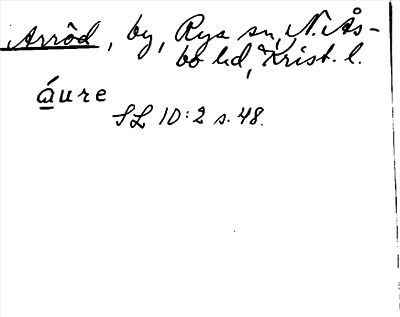 Arröd, by, Rya sn, N. Ås-
bo hd, Krist. l.
áure
SL 10:2 s. 48.